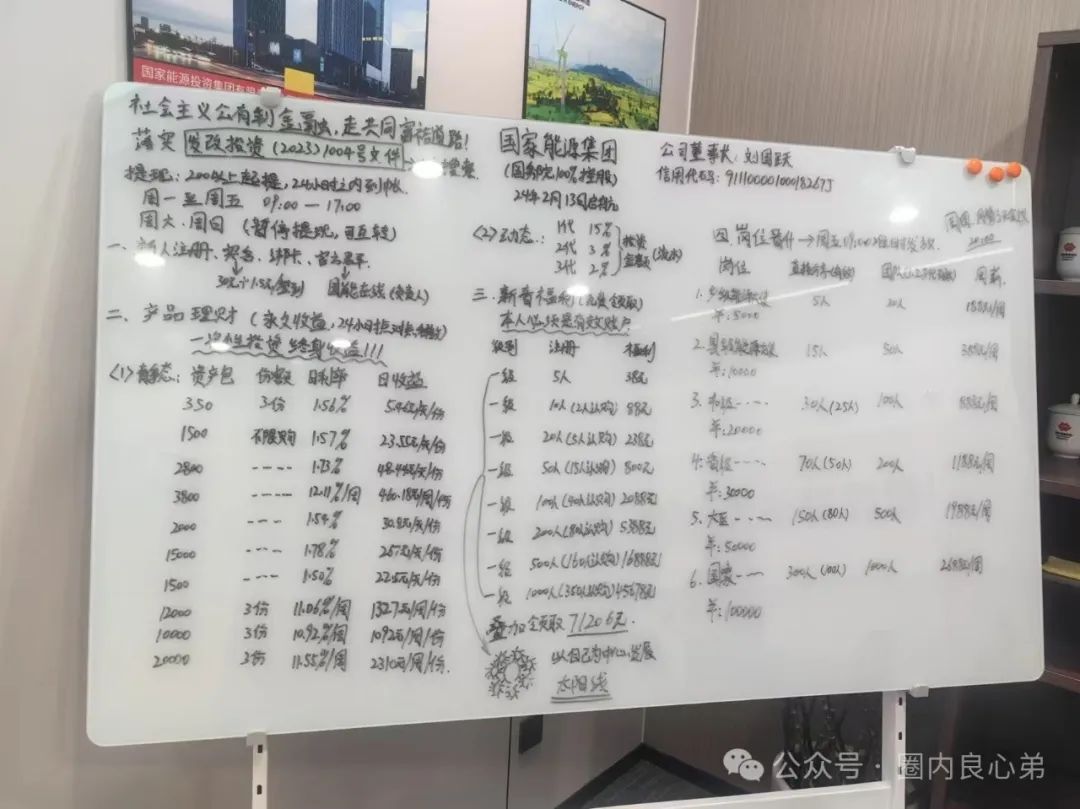 国家能源投资集团有限
社会主义公有制金融,走共同富裕道路!
落实 发改投资(2023)1004号文件
提现:200以上起提,24小时之内到帐
周一至周五 09:00—17:00
周六、周日(暂停提现,可互转)
一、新人注册、签名、绑卡、
30元+1.5元(签到) 国能在线(负责人)
二、产品理财(永久收益,24小时
一次性投资终身收益!!!
(1)静态:资产包 份额 日利率 日收益
350 3份 1.56% 5.46元/天/份
1500 不限购 1.57% 23.55元/天/份
2800 ---- 1.73% 48.44元/天/份
3800 ---- 12.11%/周 460.18元/周/份
2000 --- 1.54% 30.8元/天/份
15000 ---- 1.78% 267元/天/份
1500 ---- 1.50% 22.5元/天/份
12000 3份 11.06%/周 1327元/周/份
10000 3份 10.92%/周 1092元/周/份
20000 3份 11.55%/周 2310元/周/份
国家能源集团
(国务院100%控股)
24年2月13日启航
(2)动态: 1代 15%
2代 3% 投资金额
3代 2%
三、新春福利(免费领取)
本人必须是有效账户
级别 注册 福利
一级 5人 38元
一级 10人(2人认购) 88元
一级 20人(5人认购) 238元
一级 50人(15人认购) 800元
一级 100人(40人认购) 2088元
一级 200人(80人认购) 5388元
一级 500人(160人认购) 16888元
一级 1000人(350人认购) 45678元
叠加领取71206元.
以自己为中心发展
太阳线
公司董事长:刘国跃
信用代码:91110000100018267J
四、岗位晋升→周五
岗位 直推 团队 周薪
1.乡级 5人 20人 188元/周
年:5000
2.县级 15人 50人 388元/周
年:10000
3.市级---- 30人(25人) 100人 888元/周
年:20000
4.省级---- 70人(50人) 200人 1188元/周
年:30000
5.大区---- 150人(80人) 500人 1988元/周
年:50000
6.国家---- 300人(100人) 1000人 2688元/周
年:100000
公众号·圈内良心弟